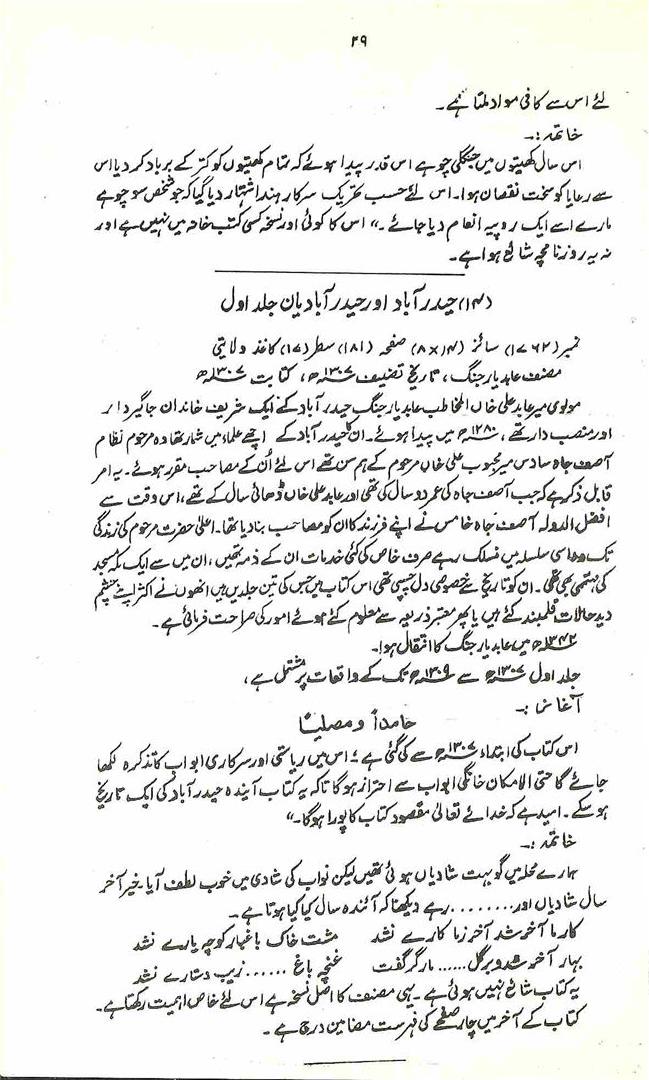 ۲۹
لئے اس سے کافی مواد ملتا ہے۔
خاتمہ :۔
اس سال کھیتوں میں جنگلی چوہے اس قدر پیدا ہوئے کہ تمام کھیتوں کو کتر کے برباد کر دیا اس
سے رعایا کو سخت نقصان ہوا۔ اس لئے حسب تحریک سرکار ہند اشتہار دیا گیا کہ جو شخص سو چوہے
مارے اسے ایک روپیہ انعام دیا جائے۔" اس کا کوئی اور نسخہ کسی کتب خانہ میں نہیں ہے اور
نہ یہ روزنامچہ شائع ہوا ہے۔
(۱۴) حیدرآباد اور حیدرآبادیان جلد اول
نمبر (۱۷۶۲) سائز (۱۴×۸) صفحہ (۱۸۱) سطر (۱۷) کاغذ ولایتی
مصنف عابد یار جنگ، تاریخ تصنیف ۱۳۰۷ھ، کتابت ۱۳۰۷ھ
مولوی میر عابد علی خاں المخاطب عابد یار جنگ حیدرآباد کے ایک شریف خاندان جاگیردار
اور منصب دار تھے، ۱۲۸۰ھ میں پیدا ہوئے۔ ان کا حیدرآباد کے اچھے علماء میں شمار تھا وہ مرحوم نظام
آصف جاہ سادس میر محبوب علی خاں مرحوم کے ہم سن تھے اس لئے اُن کے مصاحب مقرر ہوئے۔ یہ امر
قابل ذکر ہے کہ جب آصف جاہ کی عمر دو سال کی تھی اور عابد علی خاں ڈھائی سال کے تھے، اس وقت سے
افضل الدولہ آصف جاہ خامس نے اپنے فرزند کا ان کو مصاحب بنا دیا تھا۔ اعلیٰ حضرت مرحوم کی زندگی
تک وہ اسی سلسلہ میں منسلک رہے صرف خاص کی کئی خدمات ان کے ذمہ تھیں، ان میں سے ایک مکہ مسجد
کی مہتممی بھی تھی۔ ان کو تاریخ سے خصوصی دل چسپی تھی اس کتاب میں جس کی تین جلدیں ہیں انھوں نے اکثر اپنے چشم
دید حالات قلمبند کئے ہیں یا پھر معتبر ذریعہ سے معلوم کئے ہوئے امور کی صراحت فرمائی ہے۔
۱۳۴۲ھ میں عابد یار جنگ کا انتقال ہوا۔
جلد اول ۱۳۰۷ھ سے ۱۳۰۹ھ تک کے واقعات پر مشتمل ہے،
آغاز :۔
حامداً و مصلیاً
اس کتاب کی ابتداء ۱۳۰۷ھ سے کی گئی ہے؛ اس میں ریاستی اور سرکاری ابواب کا تذکرہ لکھا
جائے گا حتی الامکان خانگی ابواب سے احتراز ہوگا تاکہ یہ کتاب آیندہ حیدرآباد کی ایک تاریخ
ہو سکے۔ امید ہے کہ خدائے تعالیٰ مقصود کتاب کا پورا ہوگا۔"
خاتمہ :۔
ہمارے محلہ میں گو بہت شادیاں ہوئی تھیں لیکن نواب کی شادی میں خوب لطف آیا۔ خیر آخر
سال شادیاں اور ........ رہے دیکھنا کہ آئندہ سال کیا کیا ہوتا ہے۔
کار ما آخر شد آخر زما کارے نشد مشت خاک با غبار کوچہ یارے نشد
بہار آخر شد و ہر گل ...... مار گر گفت غنچہ باغ ...... زیب دستارے نشد
یہ کتاب شائع نہیں ہوئی ہے۔ یہی مصنف کا اصل نسخہ ہے اس لئے خاص اہمیت رکھتا ہے۔
کتاب کے آخر میں چار صفحے کی فہرست مضامین درج ہے۔